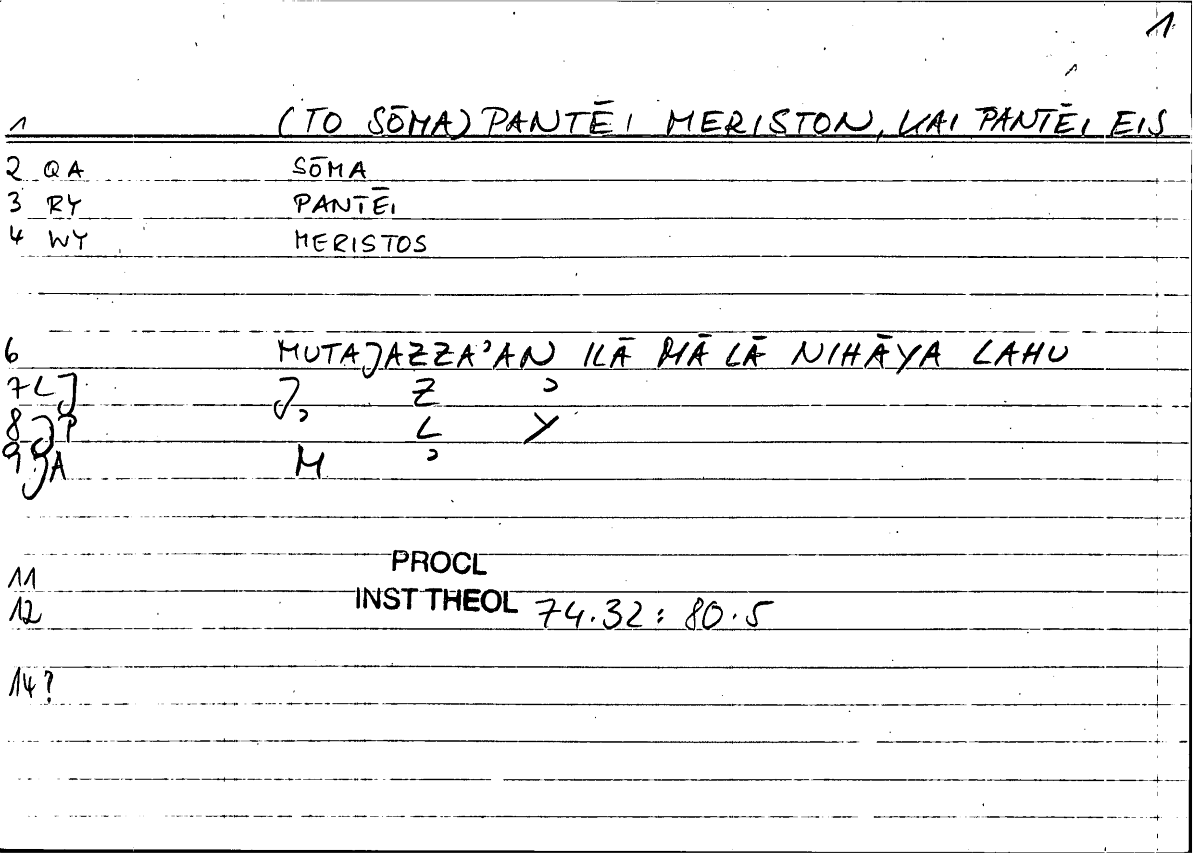 1
1 (TO SŌMA) PANTĒI MERISTON, KAI PANTĒI EIS
2 QA SŌMA
3 RY PANTĒI
4 WY MERISTOS
6 MUTAJAZZAʾAN ILĀ MĀ LĀ NIHĀYA LAHU
7 LJ J Z ʾ
8 JP ʾ L Y
9 JA M ʾ
11 PROCL
12 INST THEOL 74.32: 80.5
14?